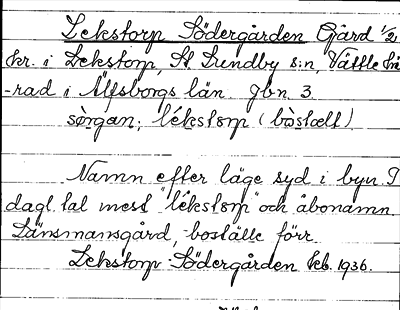 Lekstorp Södergården Gård 1/2
kr. i Lekstorp, St Lundby s:n, Vättle hä
-rad i Älfsborgs län Jbn. 3
sørgan, lékstorp (bòstælt)
Namn efter läge syd i byn I
dagl. tal mest "lékstorp" och åbonamn
Länsmansgård, -boställe förr.
Lekstorp Södergården kb. 1936.